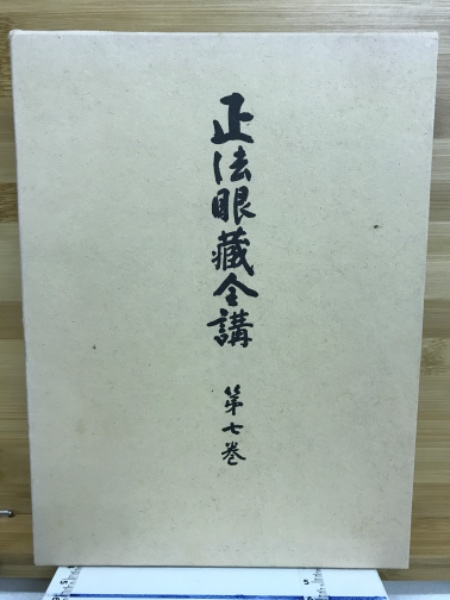 正法眼蔵全講
第七巻